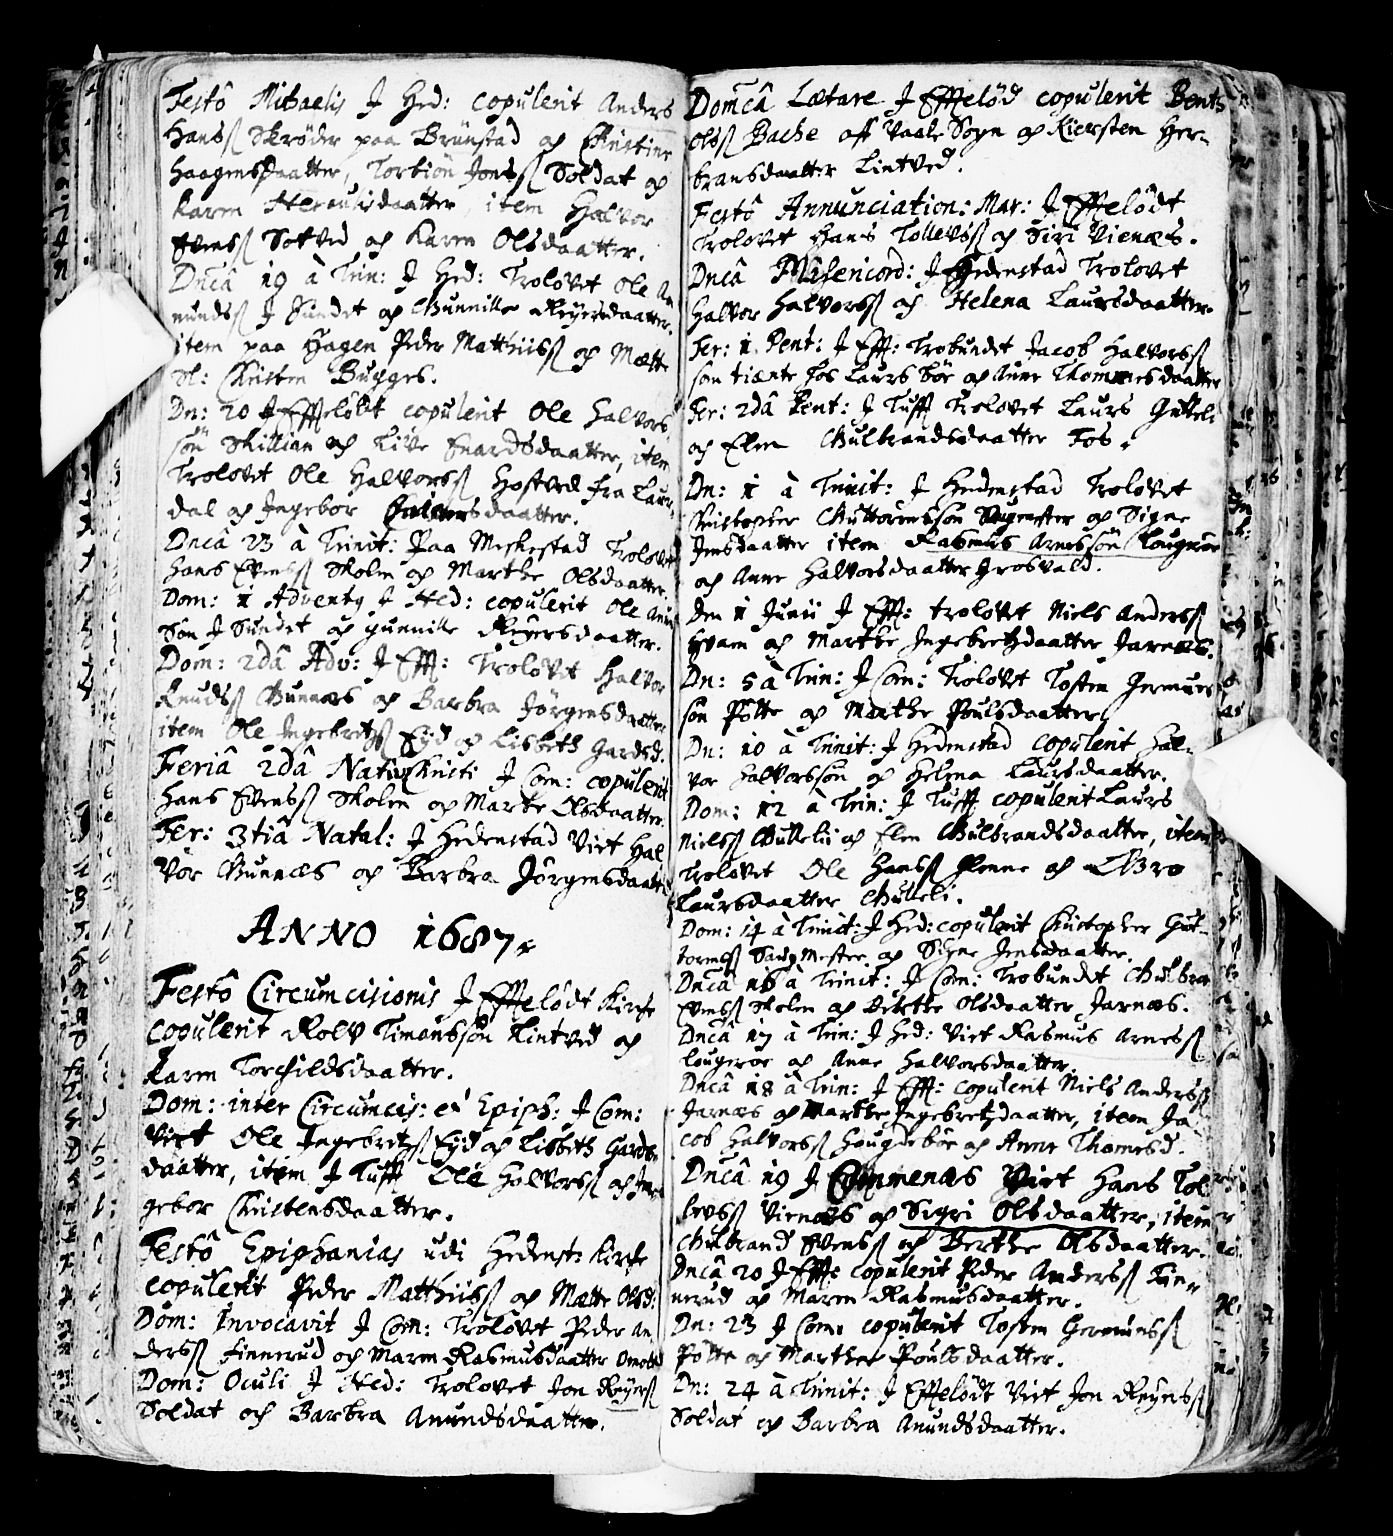 Festô Michaelis J Hed: copulerit Anders
Hansß Skrøder paa Brünstad och Christine
Haagensdaatter, Torbiön Jonsß Soldat og
Karen Heraulisdaatter item Halvor
Evensß Sotved och Karen Olsdaatter.
Dncâ 19 à Trin: J Hed: Trolovet Ole An
mundsß J Sundet och Gunnille Reyersdaatter.
item paa Hagen Peder Mathiisß och Mætte
Sl: Christen Bugges.
Dn: 20 J Effteløbt copulerit Ole Halvors
søn Skillian och Live Enardsdaatter, item
Trolovet Ole Halvorsß Hostved fra Laur
dal och Ingebor daatter.
Dncâ 23 à Trinit: Paa Meskestad Trolovet
Hans Evensß Skolen och Marthe Olsdaatter.
Dom: 1 Adventq J Hed: copulerit Ole Anun
Søn J Sundet och gunnille Reyersdaatter.
Dom: 2dâ Adv: J Eff: Trolovet Halvor
Knudsß Gunnæs och Barbra Jörgensdaatter
item Ole Ingebretsß Eyd og Lisbeth Gardsd.
Feriâ 2dâ Nativ Christi J Com: copulerit
Hans Evensß Skolen og Marte Olsdaatter.
Fer: 3tiâ Natal: J Hedenstad Viet Hal
Vor Gunnæs och Barbra Jörgensdaatter
ANNO 1687.
Festô Circumcisionis J Effteløbt Kirche
copulerit Rolv Timansson Lintved och
Karen Torchildsdaatter.
Dom: inter Circumcis: et Epiph: J Com:
Viet Ole Ingebretsß Eyd och Lisbeth Gards
daatter, item J Tuff Ole Halvorsß och In
gebor Christensdaatter.
Festô Epiphanias udi Hedenst: Kirche
copulerit Peder Matthiisß og Mætte Olsd:
Dom: Invocavit J Com: Trolovet Peder An
dersß Finnerud och Maren Rasmusdaatter
Dom: Oculi J Hed: Trolovet Jon Reyersß
Soldat och Barbra Anundsdaatter.
Domcâ Lætare J Effteløbt copulerit Bent
Olsß Bache aff Vaale Sogn og Kiersten Her-
bransdaatter Lintved.
Festô Annunciation: Mar: J Effteløbt
Trolovet Hans Tollevsß och Siri Vienæs.
Dncâ Misericord: J Hedenstad Trolovet
Halvor Halvorsß och Helena Laursdaatter.
Fer: 1. Pent: J Eff: Trobundet Jacob Halvorsß
som tiænte hos Laurs bör og Anne Thommesdaatter
Fer: 2dâ Pent: J Tuff Trolovet Laurs Gulleli
och Elen Gulbrandsdaatter Fos.
Dn: 1 à Trinit: J Hedenstad Trolovet
Christopher Guttormsson Saugmester og Signe
Jensdaatter item Rasmus Arnessøn Lougerøe
och Anne Halvorsdaatter Grosvald.
Den 1 Junii J Eff: trolovet Niels Andersß
Hvam och Marthe Ingebretsdaatter Jarnæs.
Dn: 5 à Trin: J Com: Trolovet Tosten Germuns
søn Pölte og Marthe Poulsdaatter
Dn: 10 à Trinit: J Hedenstad copulerit Hal-
vor Halvorssøn og Helena Laursdaatter.
Dom: 12 à Trin: J Tuff copulerit Laurs
Nielsß Gulleli och Elen Gulbrandsdaatter, item
Trolovet Ole Hansß Plenne och Gro
Laursdaatter Gulleli.
Dom: 14 à Trinit: J Hed: copulerit Christopher Gut-
tormsß Saugmester og Signe Jensdaatter.
Dncâ 16 à Trinit: J Com: Trobundet Gulbran
Evensß Skolen och Berthe Olsdaatter Jarnæs.
Dncâ 17 à Trin: J Hed: Viet Rasmus Arnesß
Lougeroe och Anne Halvorsdaatter.
Dncâ 18 à Trin: J Eff: copulerit Niels Andersß
Jarnæs og Marthe Ingebretsdaatter, item Ja
cob Halvorsß Hougdebör och Anne Thomesd.
Dncâ 19 J Commenæs Viet Hans Tol
levsß Vienæs og Sigri Olsdaatter, item
Gulbrand Evensß och Berthe Olsdaatter.
Dncâ 20 J Eff: copulerit Peder Andersß Fin-
nerud og Maren Rasmusdaatter.
Dn: 23 J Com: copulerit Tosten Germunsß
Pölte och Marthe Poulsdaatter.
Dn: 24 à Trinit: J Effteløbt Viet Jon Reyersß
Soldat og Barbra Anundsdaatter.